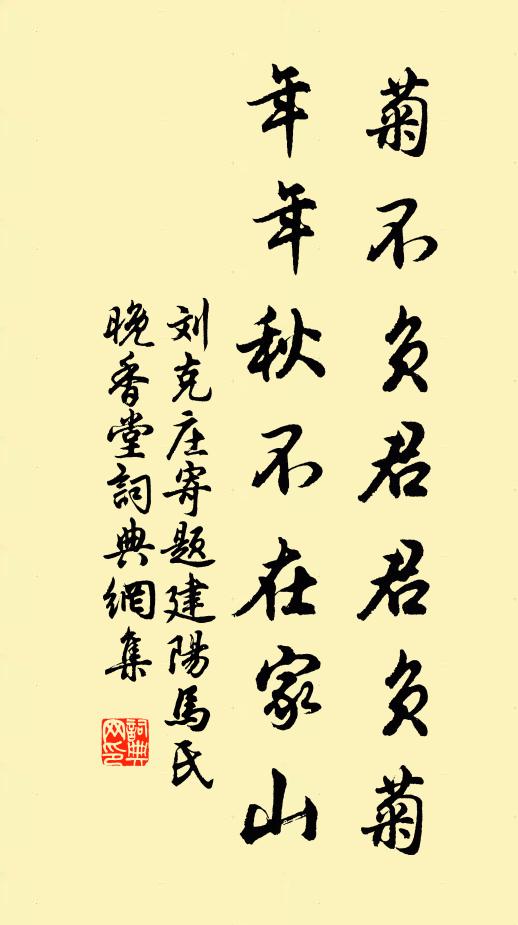 菊不负君君负菊
年年秋不在家山
刘克庄寄题建陽馬氏
晚香堂詞典網集
詞典网印